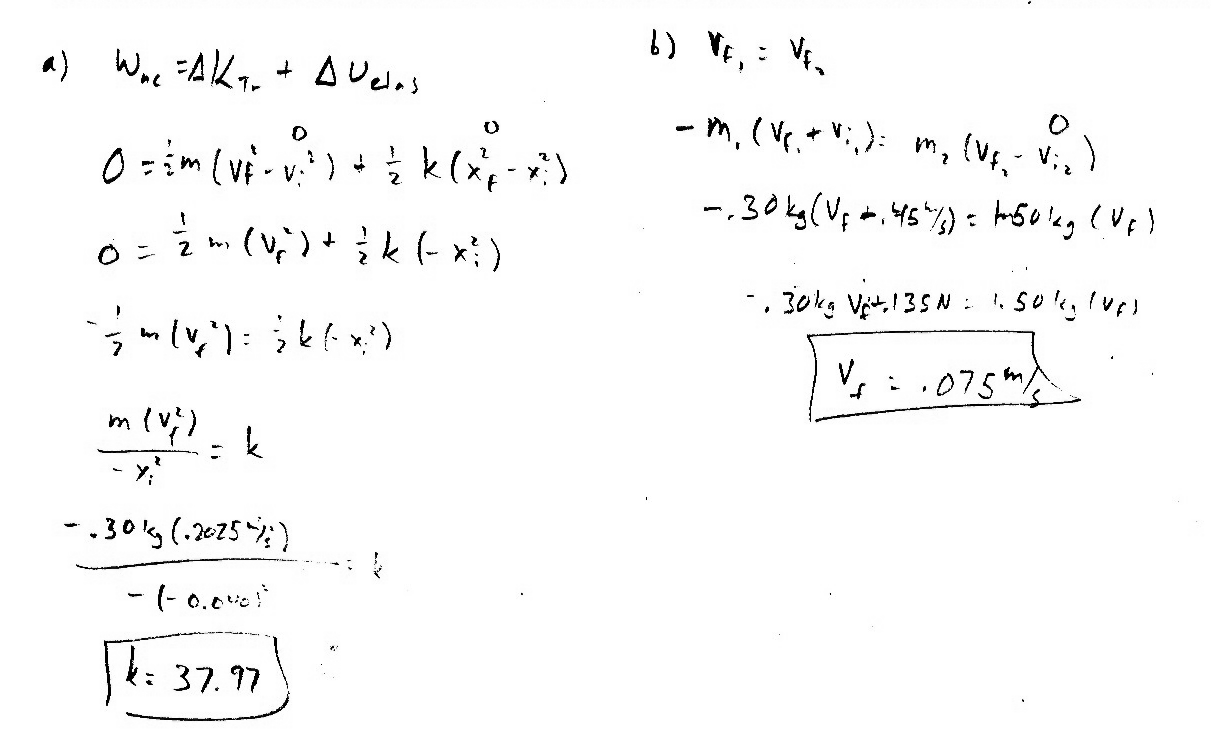 a) W_nc = ΔK_Tr + ΔU_elas
0 = ½m(v_f² - v_i²) + ½ k(x_f² - x_i²)
0 0
0 = ½ m(v_f²) + ½ k(-x_i²)
-½ m(v_f²) = ½ k(-x_i²)
m(v_f²) / -x_i² = k
-.30 kg(.2025 m/s) / -(-0.040)² = k
k = 37.97
b) v_f₁ = v_f₂
-m₁(v_f₁ + v_i₁) = m₂(v_f₂ - v_i₂)
0
-.30 kg(v_f + .45 m/s) = 1.50 kg (v_f)
-.30 kg v_f + .135 N = 1.50 kg (v_f)
v_f = .075 m/s